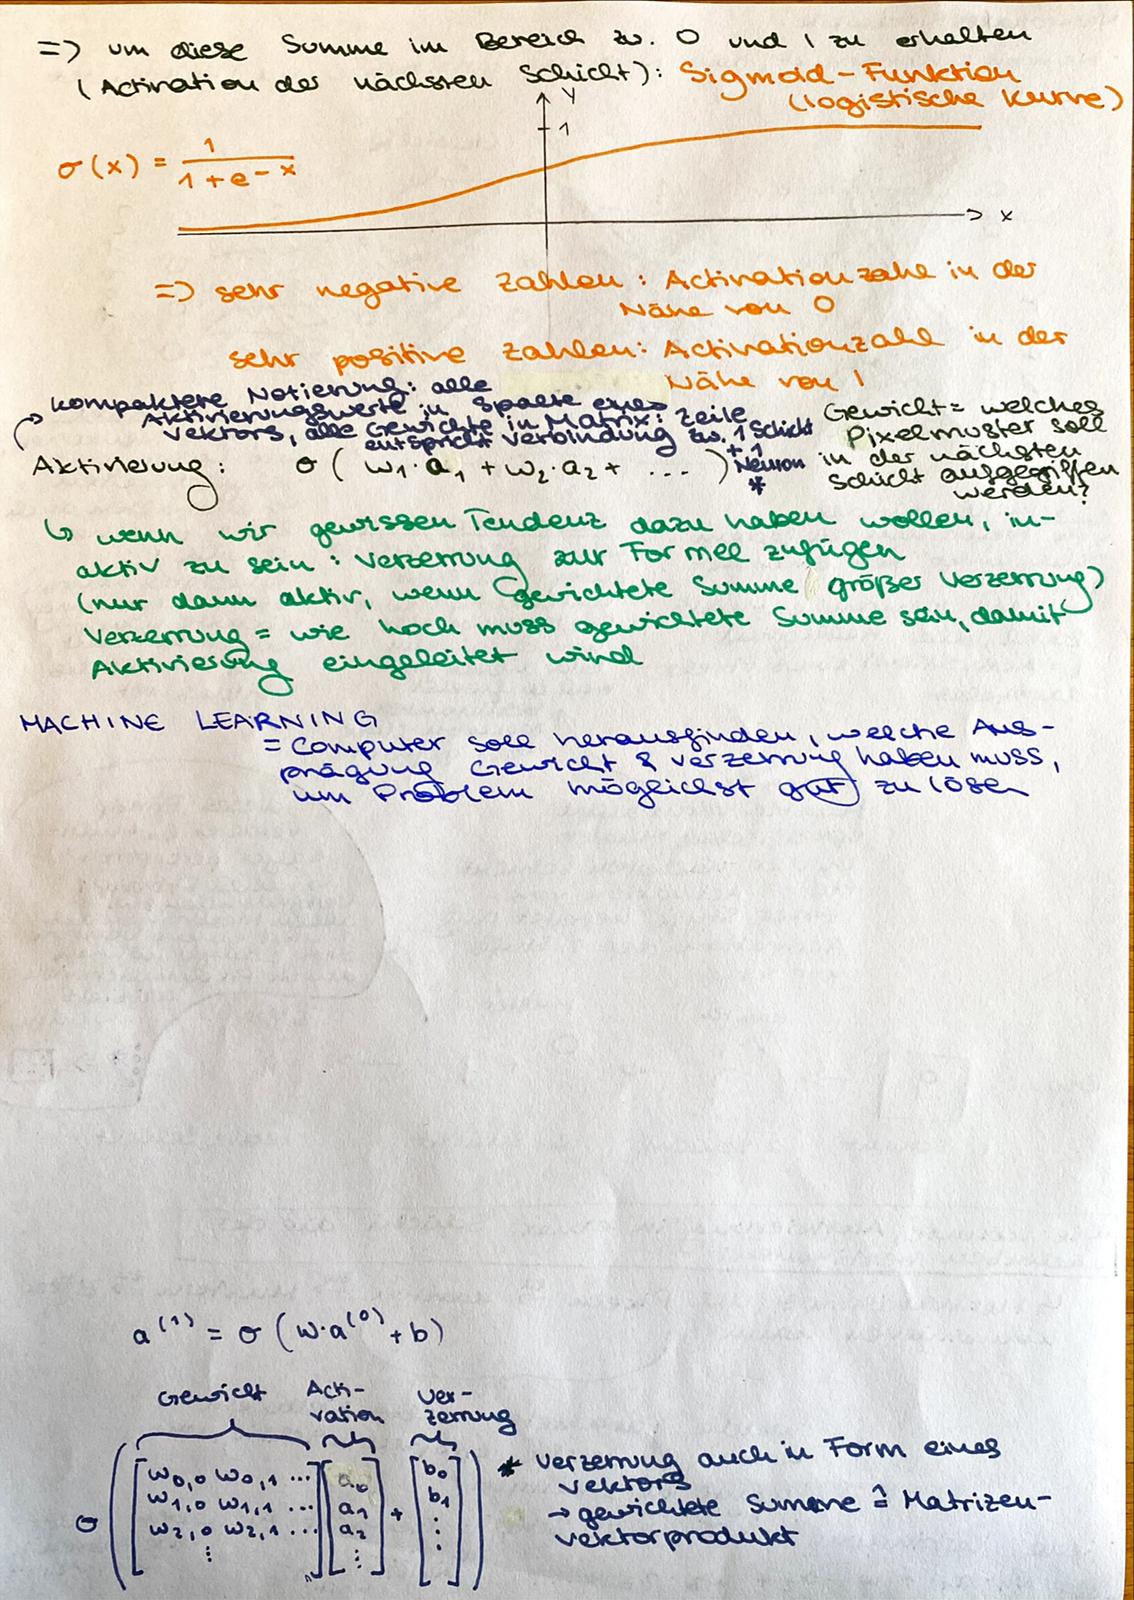 => um diese Summe im Bereich zw. 0 und 1 zu erhalten
(Activation der nächsten Schicht): Sigmoid-Funktion
(logistische Kurve)
y
1
σ(x) = 1 / 1 + e - x
x
=> sehr negative Zahlen: Activationzahl in der
Nähe von 0
sehr positive Zahlen: Activationzahl in der
Nähe von 1
kompaktere Notierung: alle
Aktivierungswerte in Spalte eines
Vektors, alle Gewichte in Matrix: Zeile
entspricht Verbindung zw. 1 Schicht
+ 1
Neuron
*
Gewicht = welches
Pixelmuster soll
in der nächsten
Schicht aufgegriffen
werden?
Aktivierung: σ ( w₁·a₁ + w₂·a₂ + ... )
↳ wenn wir gewissen Tendenz dazu haben wollen, in-
aktiv zu sein: Verzerrung zur Formel zufügen
(nur dann aktiv, wenn gewichtete Summe größer Verzerrung)
Verzerrung = wie hoch muss gewichtete Summe sein, damit
Aktivierung eingeleitet wird
MACHINE LEARNING
= Computer soll herausfinden, welche Aus-
prägung Gewicht & Verzerrung haben muss,
um Problem möglichst gut zu lösen
a⁽¹⁾ = σ (w·a⁽⁰⁾ + b)
Gewicht Acti- Ver-
vation zerrung
w0,0 w0,1 ... a0 b0
w1,0 w1,1 ... a1 + b1
σ w2,0 w2,1 ... a2 ⋮
⋮ ⋮
* Verzerrung auch in Form eines
Vektors
→ gewichtete Summe ≙ Matrizen-
vektorprodukt